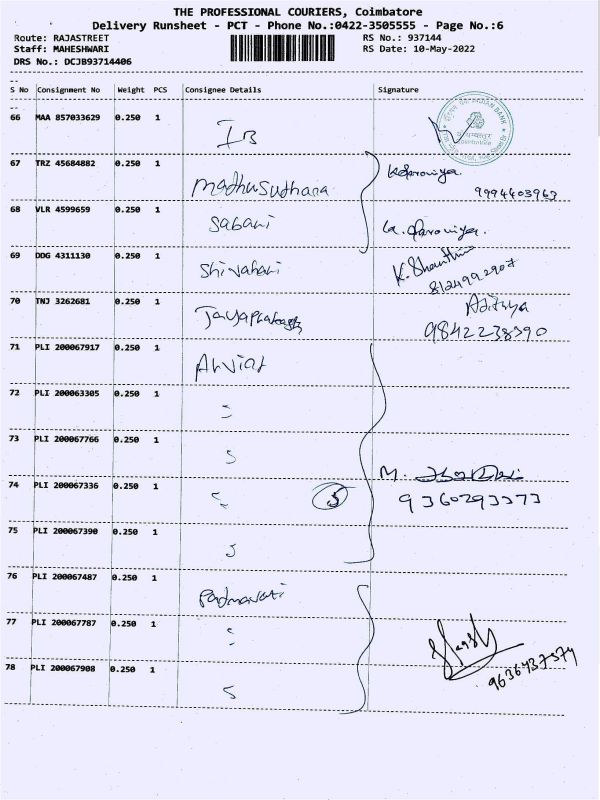 THE PROFESSIONAL COURIERS, Coimbatore
Delivery Runsheet - PCT - Phone No.:0422-3505555 - Page No.:6
Route: RAJASTREET RS No.: 937144
Staff: MAHESHWARI RS Date: 10-May-2022
DRS No.: DCJB93714406
S No Consignment No Weight PCS Consignee Details Signature
66 MAA 857033629 0.250 1 IB
INDIAN BANK
67 TRZ 45684882 0.250 1 Madhusudhana
9994403963
68 VLR 4599659 0.250 1 Sabani
69 DDG 4311130 0.250 1 Shivahari K. Shanthini
8124992907
70 TNJ 3262681 0.250 1 Jayaprakash Adithya
9842238390
71 PLI 200067917 0.250 1
72 PLI 200063305 0.250 1
73 PLI 200067766 0.250 1
74 PLI 200067336 0.250 1 5 M.
9360293373
75 PLI 200067390 0.250 1
76 PLI 200067487 0.250 1 Padmavati
77 PLI 200067787 0.250 1
78 PLI 200067908 0.250 1
9636737374